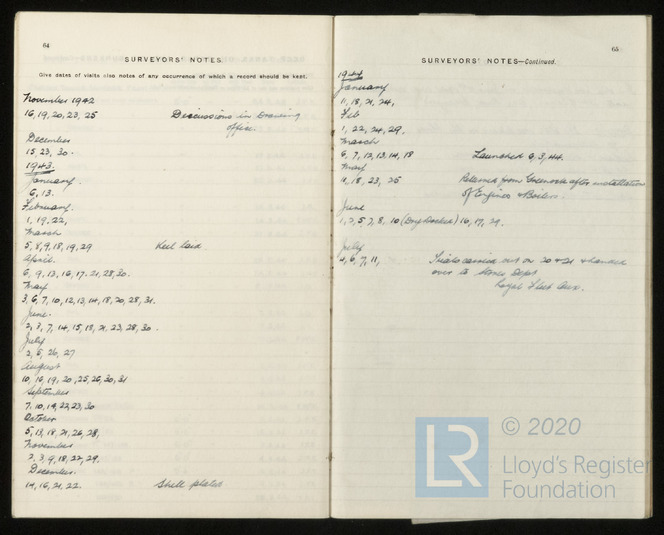 64
SURVEYORS' NOTES.
Give dates of visits also notes of any occurrence of which a record should be kept.
November 1942
16, 19, 20, 23, 25 Discussions in Drawing
Office.
December
15, 23, 30.
1943.
January.
6, 13.
February.
1, 19, 22,
March
5, 8, 9, 18, 19, 29 Keel laid
April.
6, 9, 13, 16, 17, 21, 28, 30.
May
3, 6, 7, 10, 12, 13, 14, 18, 20, 28, 31.
June.
2, 3, 7, 14, 15, 18, 21, 23, 28, 30.
July
2, 5, 26, 27
August
10, 16, 19, 20, 25, 26, 30, 31
September
7, 10, 19, 22, 23, 30
October
5, 13, 18, 21, 26, 28,
November
2, 3, 9, 18, 22, 29.
December.
14, 16, 21, 22. Shell plated
65
SURVEYORS' NOTES—Continued.
1944
January
11, 18, 21, 24,
Feb
1, 22, 24, 29.
March
6, 7, 12, 13, 14, 18 Launched 9, 3, 44.
May
4, 18, 23, 25 Returned from Greenock after installation
of Engines & Boilers.
June
1, 2, 5, 7, 8, 10 (Dry Docked) 16, 17, 29.
July
4, 6, 7, 11, Trials carried out on 20 & 21 & handed
over to Stores Dept
Royal Fleet Aux.
LR
© 2020
Lloyd's Register
Foundation